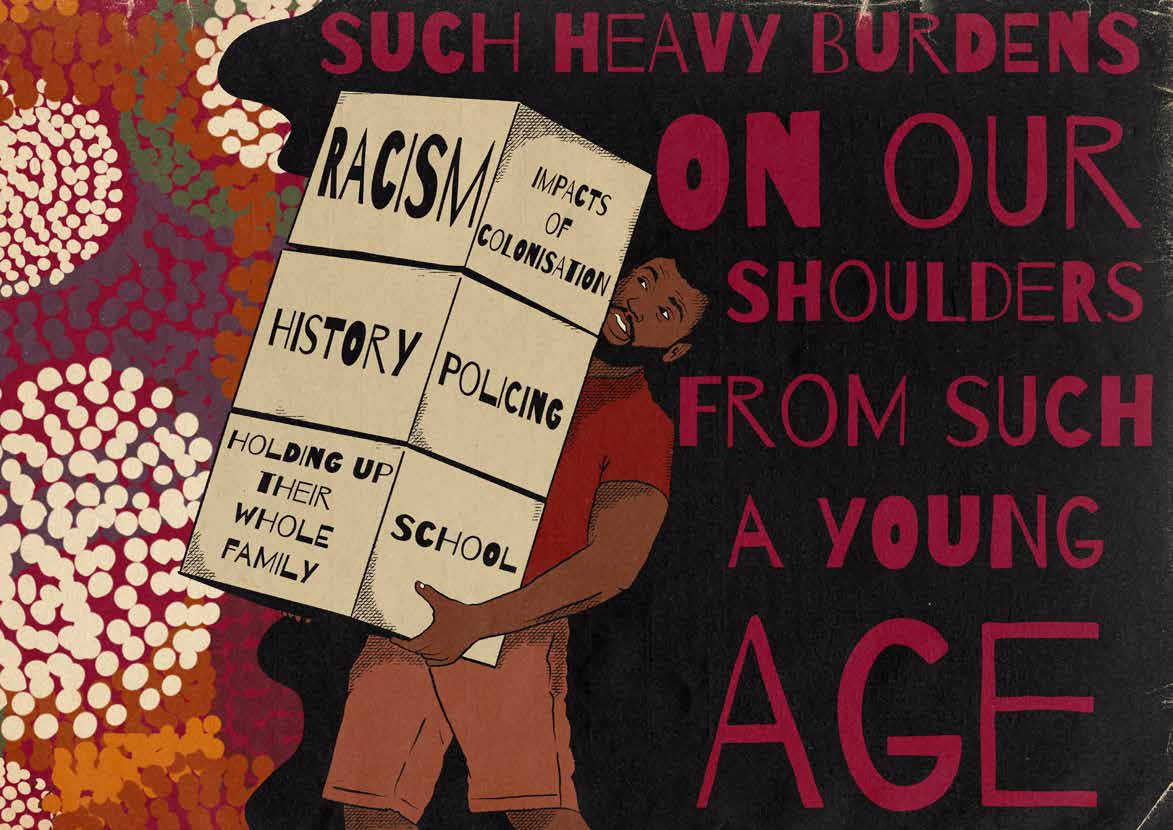 SUCH HEAVY BURDENS
ON OUR
SHOULDERS
FROM SUCH
A YOUNG
AGE
RACISM
IMPACTS
OF
COLONISATION
HISTORY
POLICING
HOLDING UP
THEIR
WHOLE
FAMILY
SCHOOL